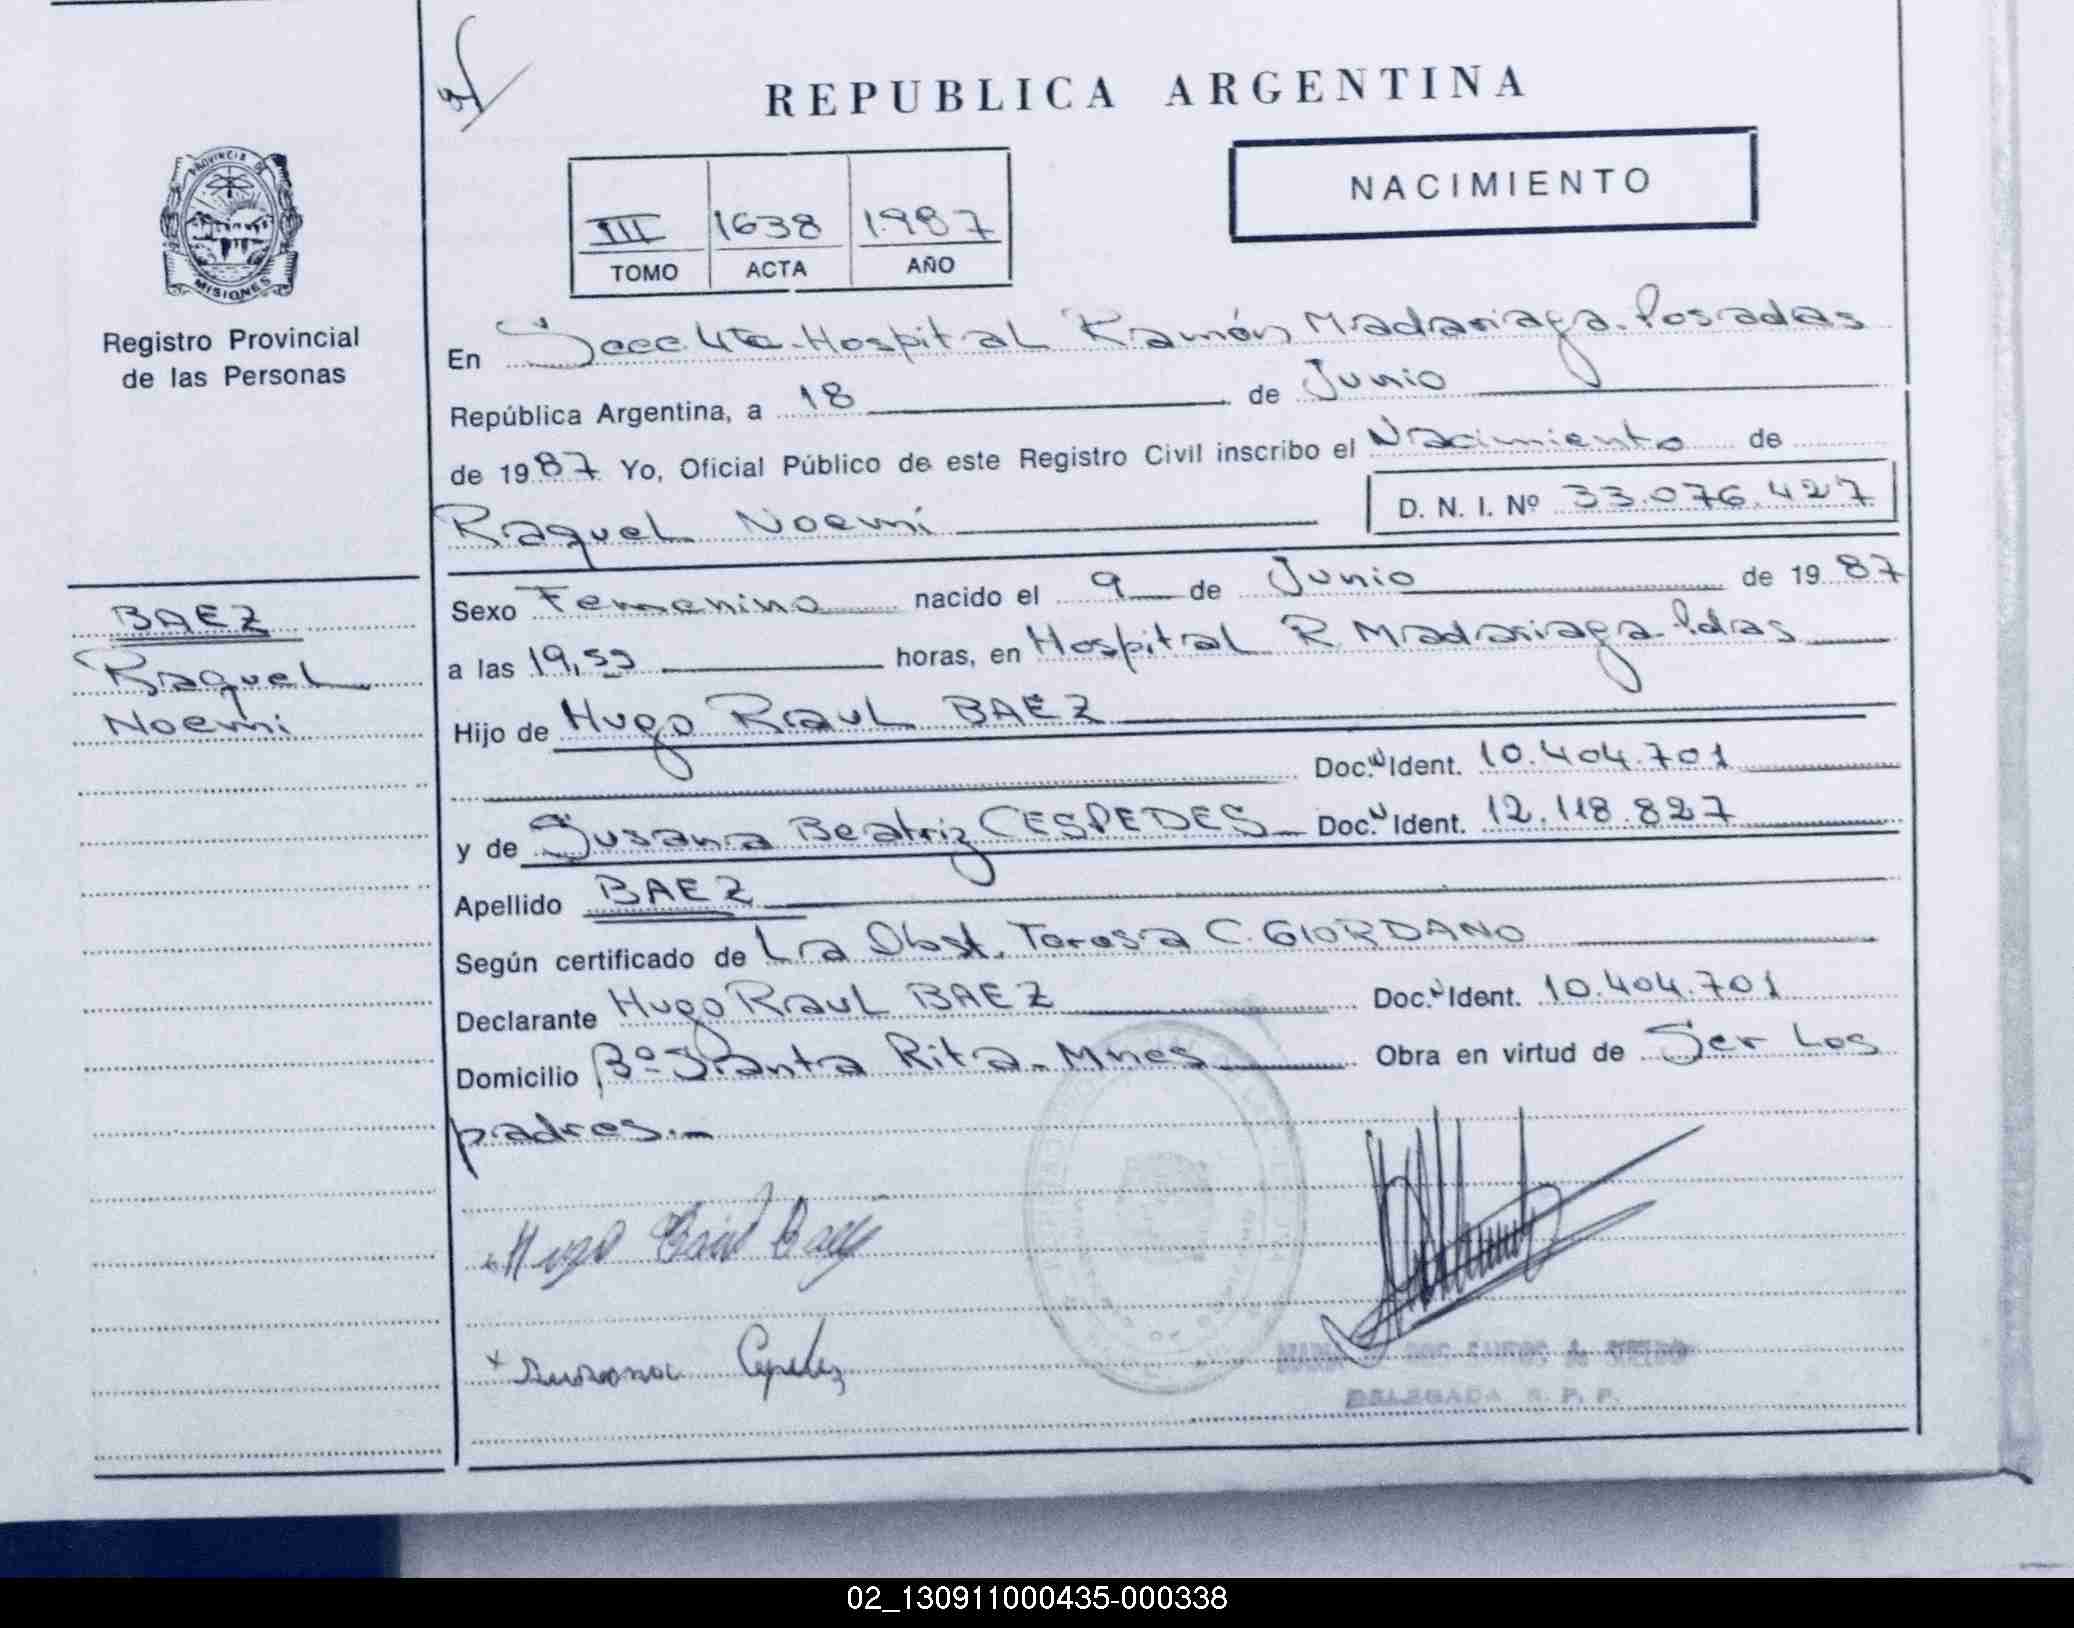 REPUBLICA ARGENTINA
NACIMIENTO
III 1638 1987
TOMO ACTA AÑO
PROVINCIA DE
MISIONES
Registro Provincial
de las Personas
BAEZ
Raquel
Noemi
En Secc. 4ta. Hospital Ramón Madariaga. Posadas
República Argentina, a 18 de Junio
de 1987 Yo, Oficial Público de este Registro Civil inscribo el Nacimiento de
Raquel Noemí D. N. I. Nº 33.076.427
Sexo Femenino nacido el 9 de Junio de 1987
a las 19,55 horas, en Hospital R. Madariaga. Pdas
Hijo de Hugo Raul BAEZ
Doc. Ident. 10.404.701
y de Susana Beatriz CESPEDES Doc. Ident. 12.118.827
Apellido BAEZ
Según certificado de La Obst. Teresa C. GIORDANO
Declarante Hugo Raul BAEZ Doc. Ident. 10.404.701
Domicilio Bº Santa Rita. Mnes Obra en virtud de Ser los
padres.-
Hugo Raul Baez
x Susana Cespedes
DOS SANTOS de
DELEGADA R. P. P.
02_130911000435-000338